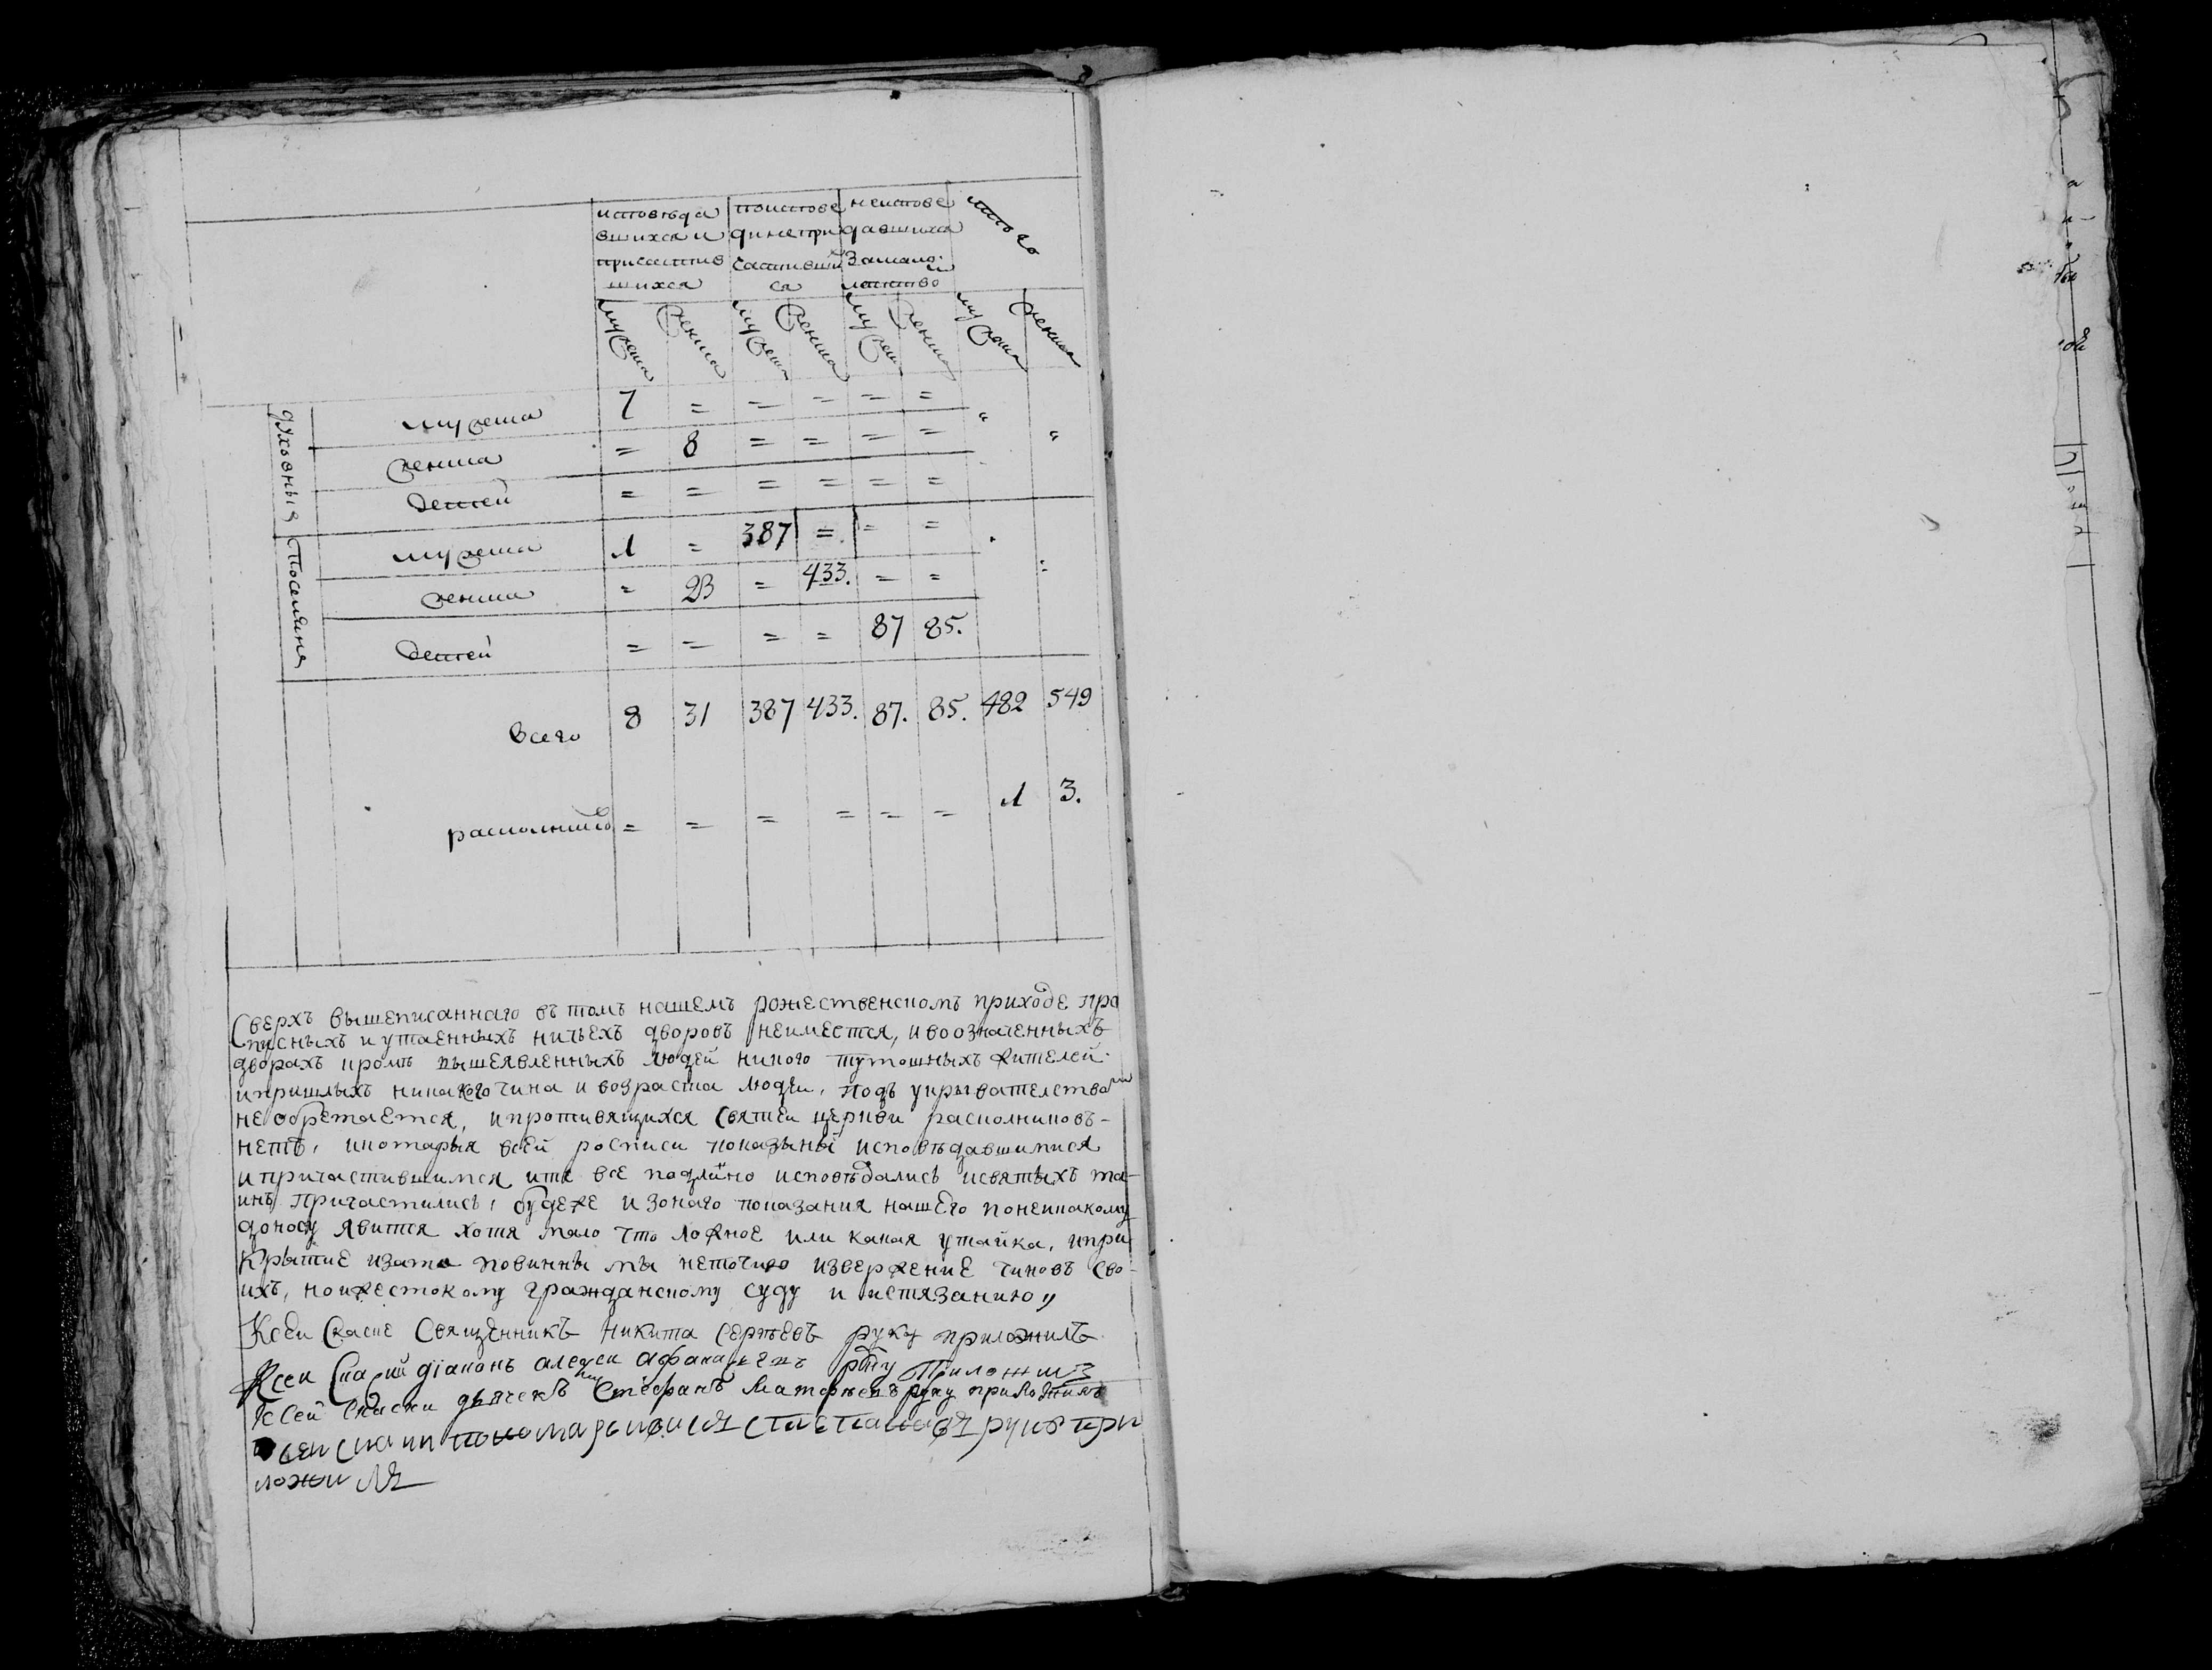 исповѣда поиспове неиспове итого
вшихся и дине при давшихся
причастив частивших замало
шихся ся летство
мужеска женска мужеска женска мужеск женска мужеска женска
духовныя мужеска 7 = = = = = " "
женска = 8 = = = =
детей = = = = = =
поселяне мужеска 1 = 387 = = =
женска = 23 = 433. = =
детей = = = = 87 85.
всего 8 31 387 433. 87. 85. 482 549
расколников = = = = = = 1 3.
Сверхъ вышеписаннаго въ томъ нашемъ рожественскомъ приходе про
писныхъ и утаенныхъ ничьехъ дворовъ неимеется, и во означенныхъ
дворахъ кромѣ вышеявленныхъ людей никого тутошныхъ жителей
и пришлыхъ никакого чина и возраста людеи, подъ укрывателством
не обретается, и противящихся святеи церкви расколниковъ
нетъ, и которыя в сей росписи показаны исповѣдавшимися
и причастившимися и тѣ все подлинно исповѣдались и святыхъ та
инъ причастились, буде же и з онаго показания нашего по неинакому
доносу явится хотя мало что ложное или какая утайка, и при
крытие и за то повинны мы неточию извержение чиновъ сво
ихъ, но и жестокому гражданскому суду и истязанию
К сеи скаске Священникъ Никита Сергѣевъ руку приложилъ
К сеи скаски діаконъ алеѯеи афанасьевъ руку приложилъ
К сей скаски дьячекъ Стефанъ Матфѣевъ руку приложилъ
К сеи скаски пономарь степановъ руку при
ложилъ